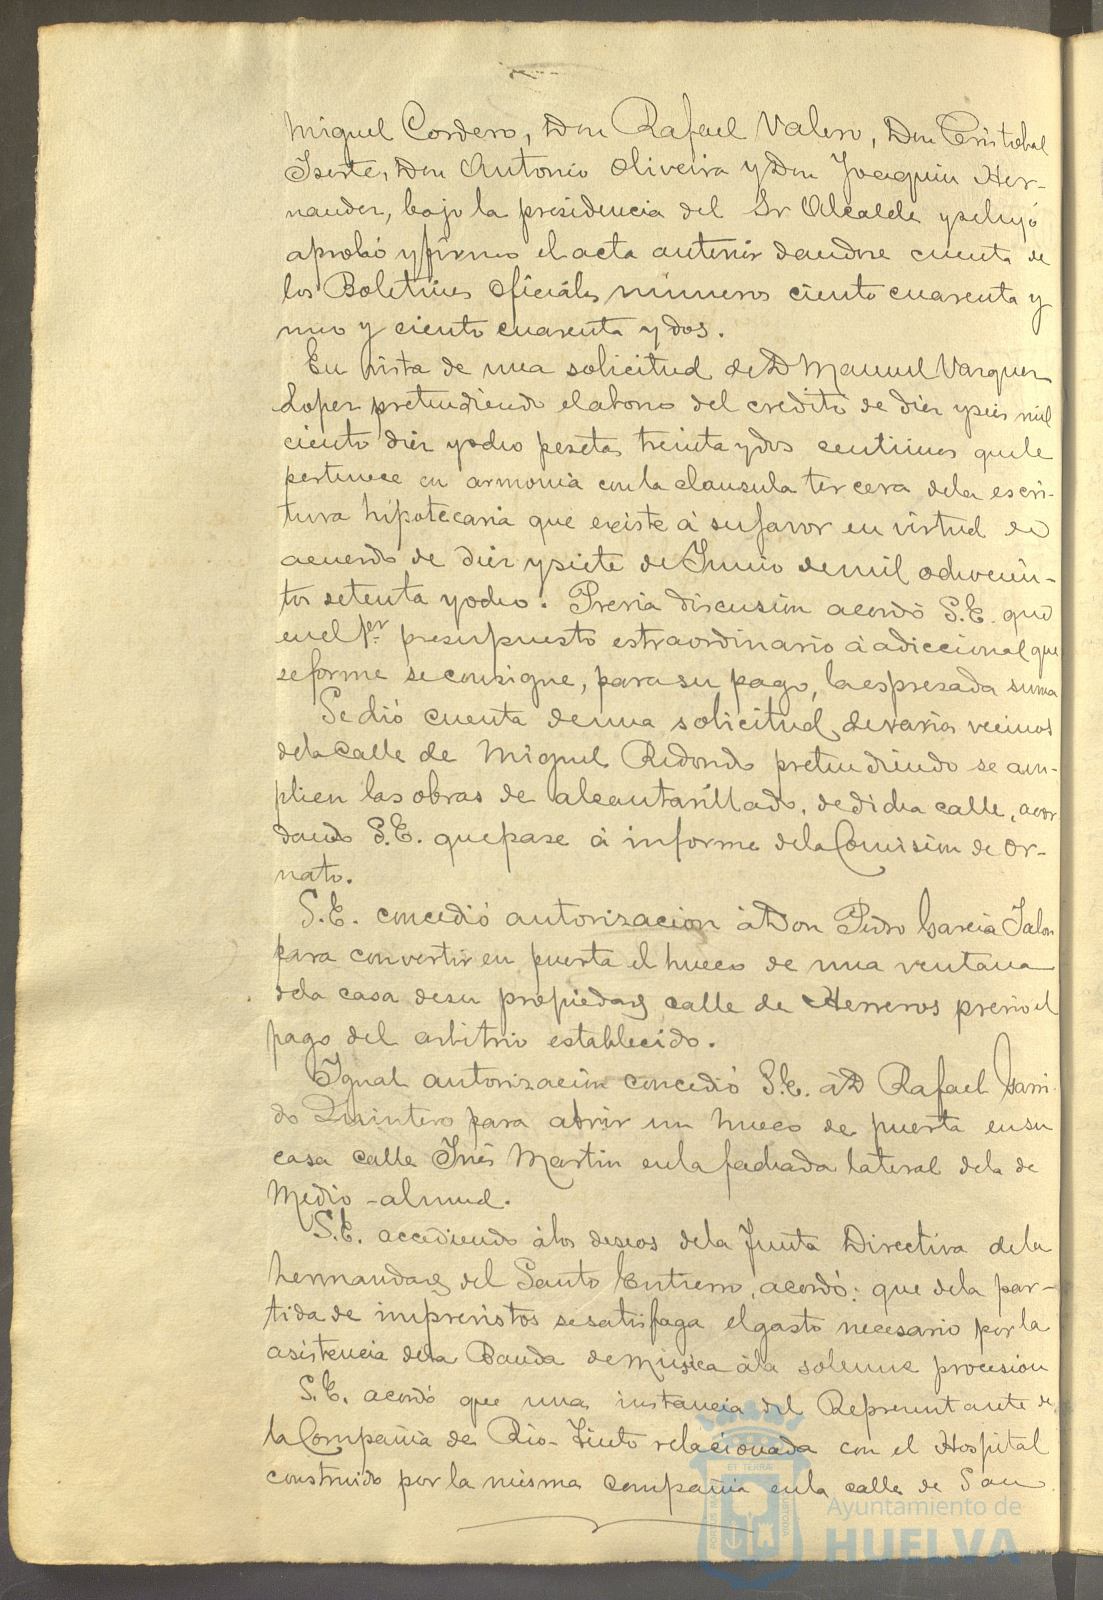 Miguel Cordero, Don Rafael Valero, Don Cristobal
Iserte, Don Antonio Oliveira y Don Joaquin Her-
nandez, bajo la presidencia del Sr Alcalde y se leyó
aprobó y firmó el acta anterior dandose cuenta de
los Boletines Oficiales números ciento cuarenta y
uno y ciento cuarenta y dos.
En vista de una solicitud de D Manuel Vazquez
Lopez pretendiendo el abono del credito de diez y seis mil
ciento diez y ocho pesetas treinta y dos centimos que le
pertenece en armonia con la clausula tercera de la escri-
tura hipotecaria que existe á su favor en virtud de
acuerdo de diez y siete de Junio de mil ochocien-
tos setenta y ocho. Previa discusión acordó S.E. que
en el 1er presupuesto estraordinario ó adiccional que
se forme se consigne, para su pago, la espresada suma
Se dió cuenta de una solicitud de varios vecinos
de la calle de Miguel Redondo pretendiendo se am-
plien las obras de alcantarillado, de dicha calle, acor
dando S.E. que pase á informe de la Comisión de Or-
nato.
S.E. concedió autorización á Don Pedro Garcia Jalon
para convertir en puerta el hueco de una ventana
de la casa de su propiedad calle de Herreros previo el
pago del arbitrio establecido.
Igual autorización concedió S.E. á D Rafael Garri-
do Quintero para abrir un hueco de puerta en su
casa calle Inés Martin en la fachada lateral de la de
Medio-almud.
S.E. accediendo á los deseos de la Junta Directiva de la
hermandad del Santo Entierro, acordó: que de la par-
tida de imprevistos se satisfaga el gasto necesario por la
asistencia de la Banda de música á la solemne procesión
S.E. acordó que una instancia del Representante de
la Compañia de Rio-Tinto relacionada con el Hospital
construido por la misma compañia en la calle de San
Ayuntamiento de
HUELVA